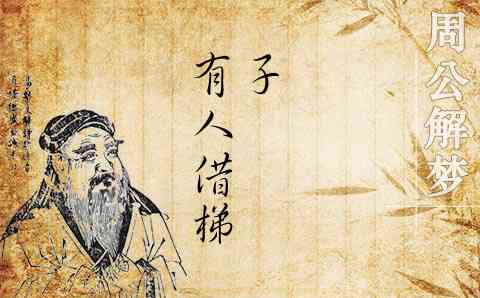 周公解梦
有人借梯
子